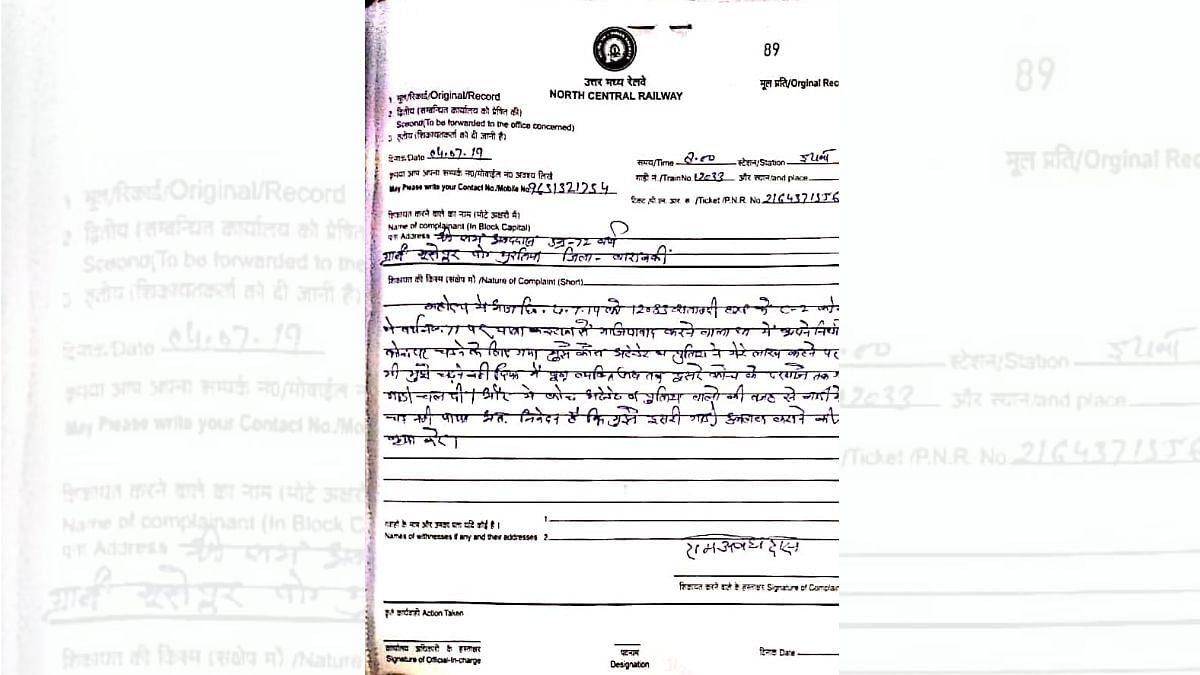 89
उत्तर मध्य रेलवे
NORTH CENTRAL RAILWAY
मूल प्रति/Orginal Rec
1 मूल/रिकार्ड/Original/Record
2 द्वितीय (सम्बन्धित कार्यालय को प्रेषित की)
Scound(To be forwarded to the office concerned)
3 तृतीय (शिकायतकर्ता को दी जानी है)
दिनांक/Date 04.07.19
समय/Time 8.00 स्टेशन/Station इटावा
कृपया आप अपना सम्पर्क न0/मोबाईल न0 अवश्य लिखें
गाड़ी नं./TrainNo 12033 और स्थान/and place
May Please write your Contact No./Mobile No 9651321754
/Ticket /P.N.R. No 2164371556
शिकायत करने वाले का नाम (मोटे अक्षरों में)
Name of complainant (In Block Capital)
पता Address श्री राम अवधदास उम्र-72 वर्ष
ग्राम पो० जिला - बाराबंकी
शिकायत की किस्म (संक्षेप में) /Nature of Complaint (Short)
महोदय मैं आज दि. 4.7.19 को को C-2 कोच
में पर से गाजियाबाद करने वाला था मैं अपने
चढ़ने के लिए गया मुझे कोच अटेंडेंट व पुलिस ने मेरे लाख करने पर
भी मुझे चढ़ने नहीं दिया मैं जब तक दूसरे कोच के दरवाजे तक
गाड़ी चल दी। और मैं कोच अटेंडेंट व पुलिस वालों की वजह से
चढ़ नहीं पाया अतः निवेदन है कि मुझे दूसरी गाड़ी कराने की
कृपा करें।
गवाहों के नाम और उनका पता यदि कोई है। 1
Names of witnesses if any and their addresses 2
रामअवध दास
शिकायत करने वाले के हस्ताक्षर Signature of Complain
कृत कार्यवाही Action Taken
कार्यालय अधिकारी के हस्ताक्षर
Signature of Official-in-charge
पदनाम
Designation
दिनांक Date